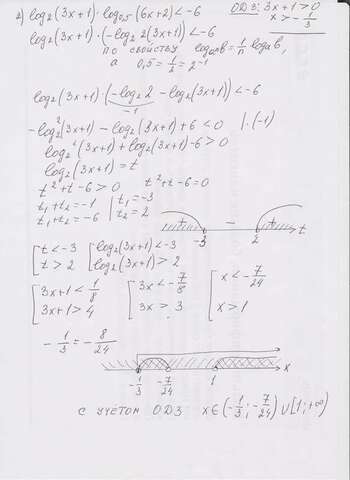 2) log₂(3x+1)·log₀,₅(6x+2)<-6 ОДЗ: 3x+1>0
x>-1/3
log₂(3x+1)·(-log₂2(3x+1))<-6
по свойству log_{aⁿ}b=1/n log_a b,
а 0,5=1/2=2⁻¹
log₂(3x+1)·(-log₂2-log₂(3x+1))<-6
-1
-log₂²(3x+1)-log₂(3x+1)+6<0 |·(-1)
log₂²(3x+1)+log₂(3x+1)-6>0
log₂(3x+1)=t
t²+t-6>0 t²+t-6=0
t₁+t₂=-1 | t₁=-3
t₁·t₂=-6 | t₂=2
+ - +
-3 2 t
[t<-3 [log₂(3x+1)<-3
[t>2 [log₂(3x+1)>2
[3x+1<1/8 [3x<-7/8 [x<-7/24
[3x+1>4 [3x>3 [x>1
-1/3=-8/24
-1/3 -7/24 1 x
с учётом ОДЗ x∈(-1/3;-7/24)∪[1;+∞)